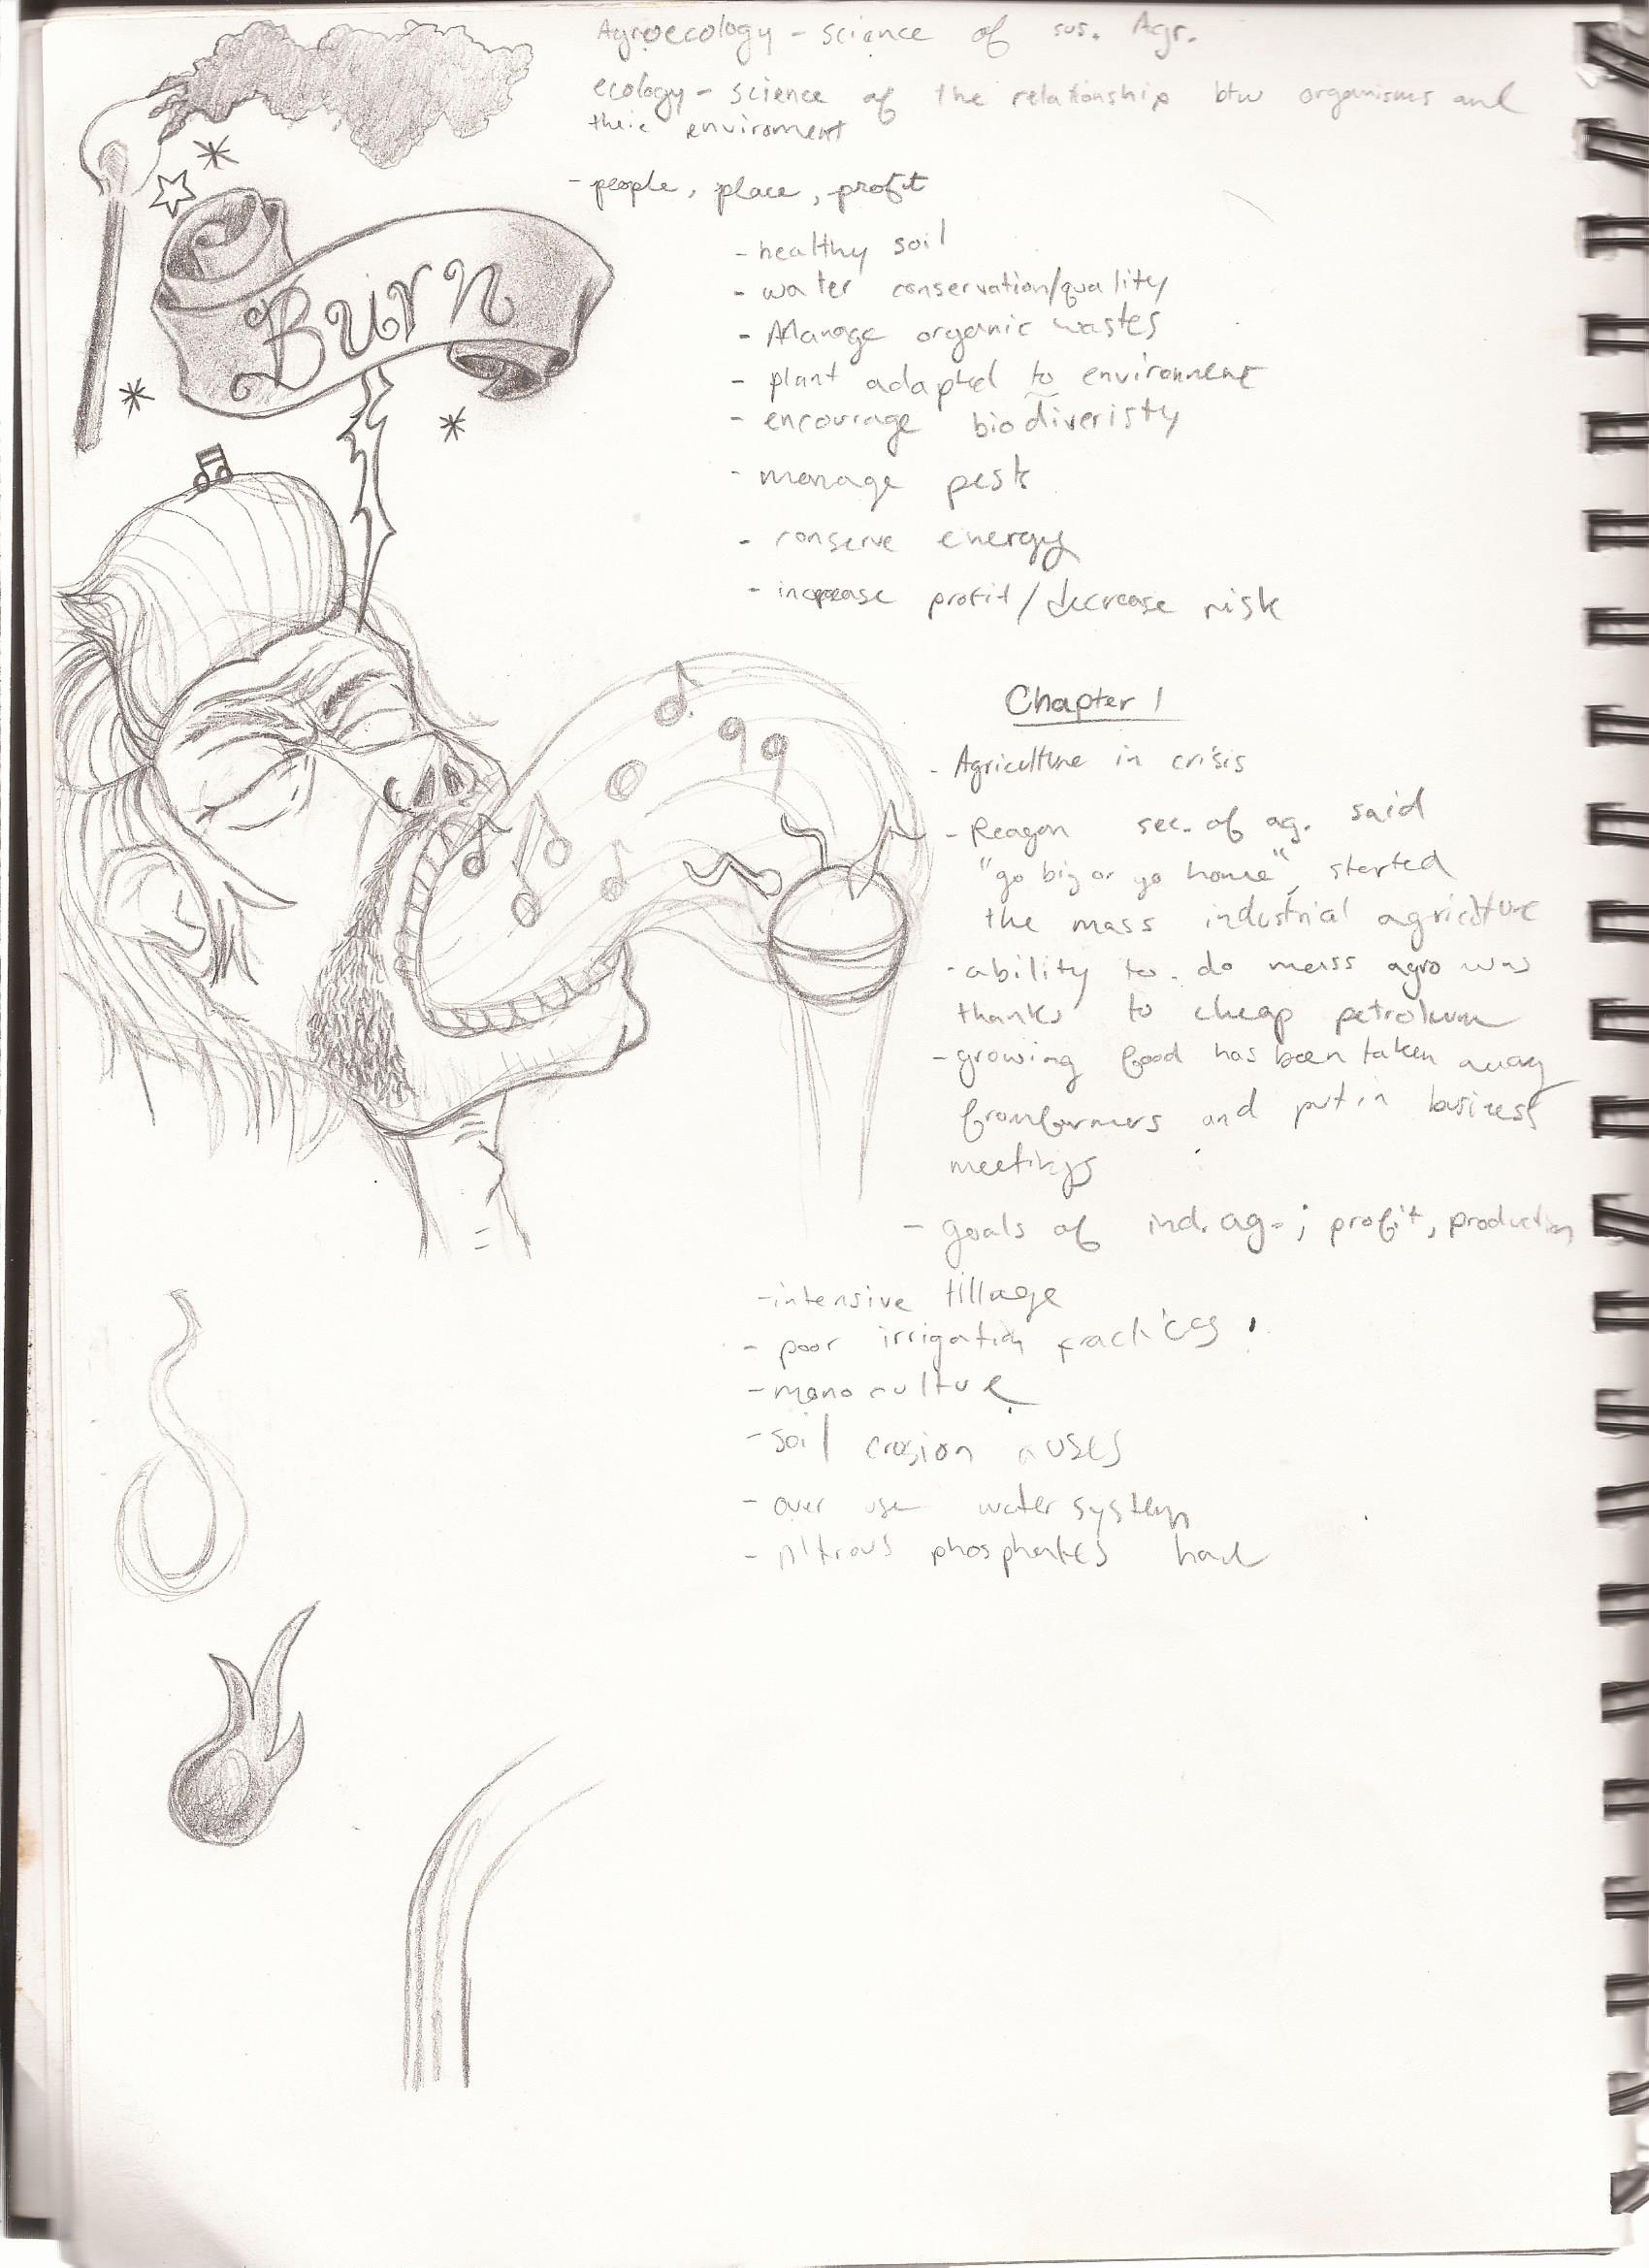 Agroecology - science of sus. Agr.
ecology - science of the relationship btw organisms and
their enviroment
- people, place, profit
Burn
- healthy soil
- water conservation/quality
- Manage organic wastes
- plant adapted to environment
- encourage biodiveristy
- manage pests
- conserve energy
- increase profit/decrease risk
Chapter 1
- Agriculture in crisis
- Reagan sec. of ag. said
"go big or go home", started
the mass industrial agriculture
- ability to do mass agro was
thanks to cheap petroleum
- growing food has been taken away
from farmers and put in business
meetings
- goals of ind. ag. ; profit, production
- intensive tillage
- poor irrigation practices
- monoculture
- soil erosion
- over use water system
- nitrous phosphates